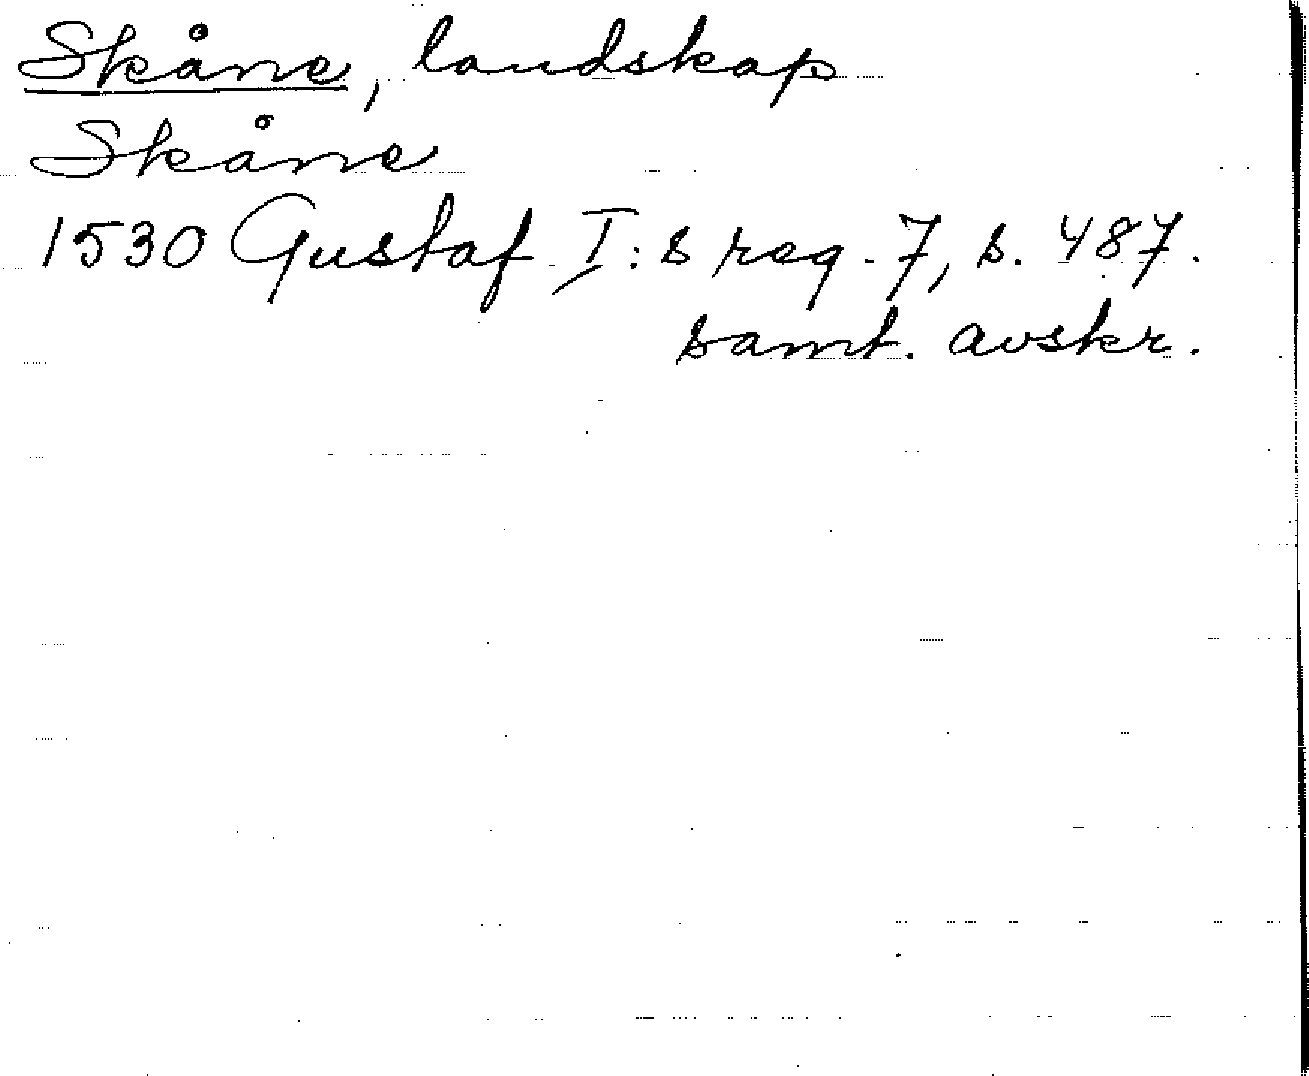 Skåne, landskap
Skåne
1530 Gustaf I:s reg. 7, s. 487.
samt. avskr.